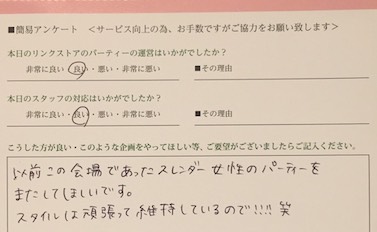 ■簡易アンケート <サービス向上の為、お手数ですがご協力をお願い致します>
本日のリンクストアのパーティーの運営はいかがでしたか?
非常に良い・良い・悪い・非常に悪い ■その理由
本日のスタッフの対応はいかがでしたか?
非常に良い・良い・悪い・非常に悪い ■その理由
こうした方が良い・このような企画をやってほしい等、ご要望がございましたらご記入ください。
以前この会場であったスレンダー女性のパーティーを
またしてほしいです。
スタイルは頑張って維持しているので!!!! 笑